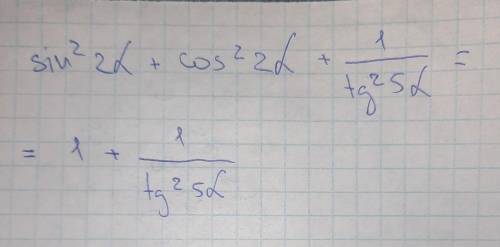 sin² 2α + cos² 2α + 1/tg² 5α =
= 1 + 1/tg² 5α